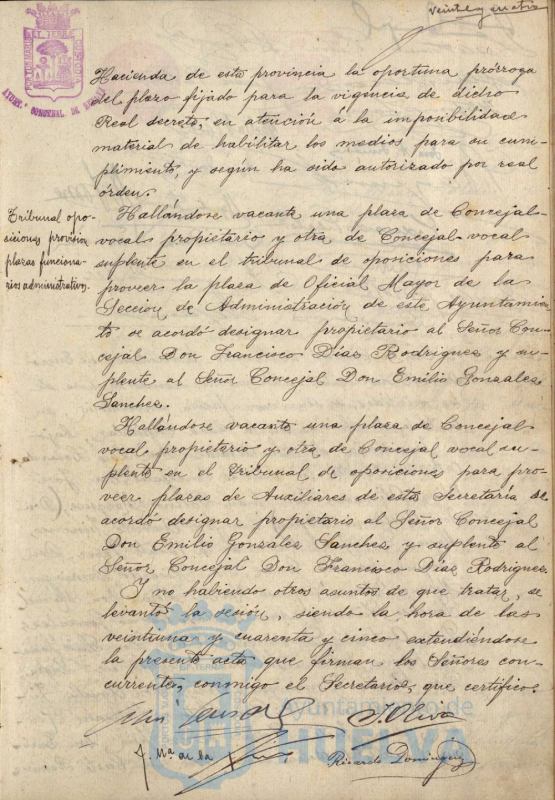 veinte y cuatro
PORTUS MARIS ET TERRE CUSTODIA
AYUNT. CONSTNAL. DE HUELVA
Hacienda de esta provincia la oportuna prórroga
del plazo fijado para la vigencia de dicho
Real decreto, en atención á la imposibilidad
material de habilitar los medios para su cum-
plimiento, y según ha sido autorizado por real
órden.
Tribunal opo-
siciones provisión
plazas funciona-
rios administrativos.
Hallándose vacante una plaza de Concejal-
vocal propietario y otra de Concejal-vocal
suplente en el tribunal de oposiciones para
proveer la plaza de Oficial Mayor de la
Sección de Administración de este Ayuntamien
to se acordó designar propietario al Señor Con-
cejal Don Francisco Díaz Rodriguez y su-
plente al Señor Concejal Don Emilio Gonzalez
Sanchez.
Hallándose vacante una plaza de Concejal
vocal propietario y otra de Concejal vocal su-
plente en el Tribunal de oposiciones para pro-
veer plazas de Auxiliares de esta Secretaría se
acordó designar propietario al Señor Concejal
Don Emilio Gonzalez Sanchez y suplente al
Señor Concejal Don Francisco Díaz Rodriguez.
Y no habiendo otros asuntos de que tratar, se
levantó la sesión, siendo la hora de las
veintiuna y cuarenta y cinco extendiéndose
la presente acta que firman los Señores con-
currentes, conmigo el Secretario, que certifico.
J. Oliva
J. Mª. de la
Ricardo Dominguez
Ayuntamiento de
HUELVA